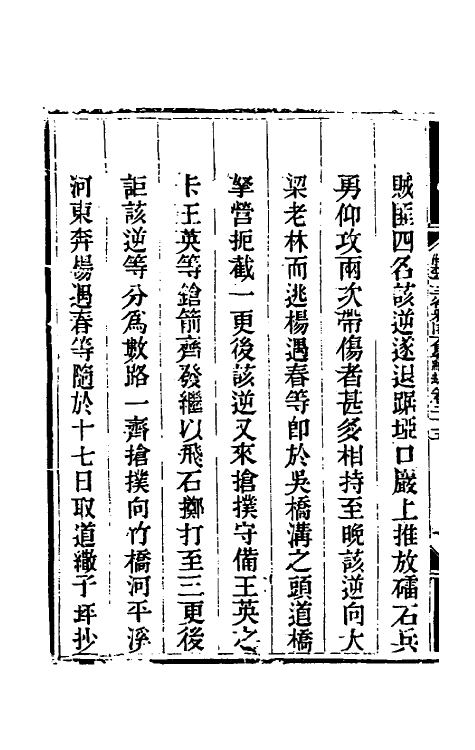 賊匪四名該逆遂退踞埡口巖上推放礌石兵
勇仰攻兩次帶傷者甚多相持至晚該逆向大
梁老林而逃楊遇春等卽於吳橋溝之頭道橋
拏營扼截一更後該逆又來搶撲守備王英之
卡王英等鎗箭齊發繼以飛石擲打至三更後
詎該逆等分爲數路一齊搶撲向竹橋河平溪
河東奔楊遇春等隨於十七日取道繖子坪抄